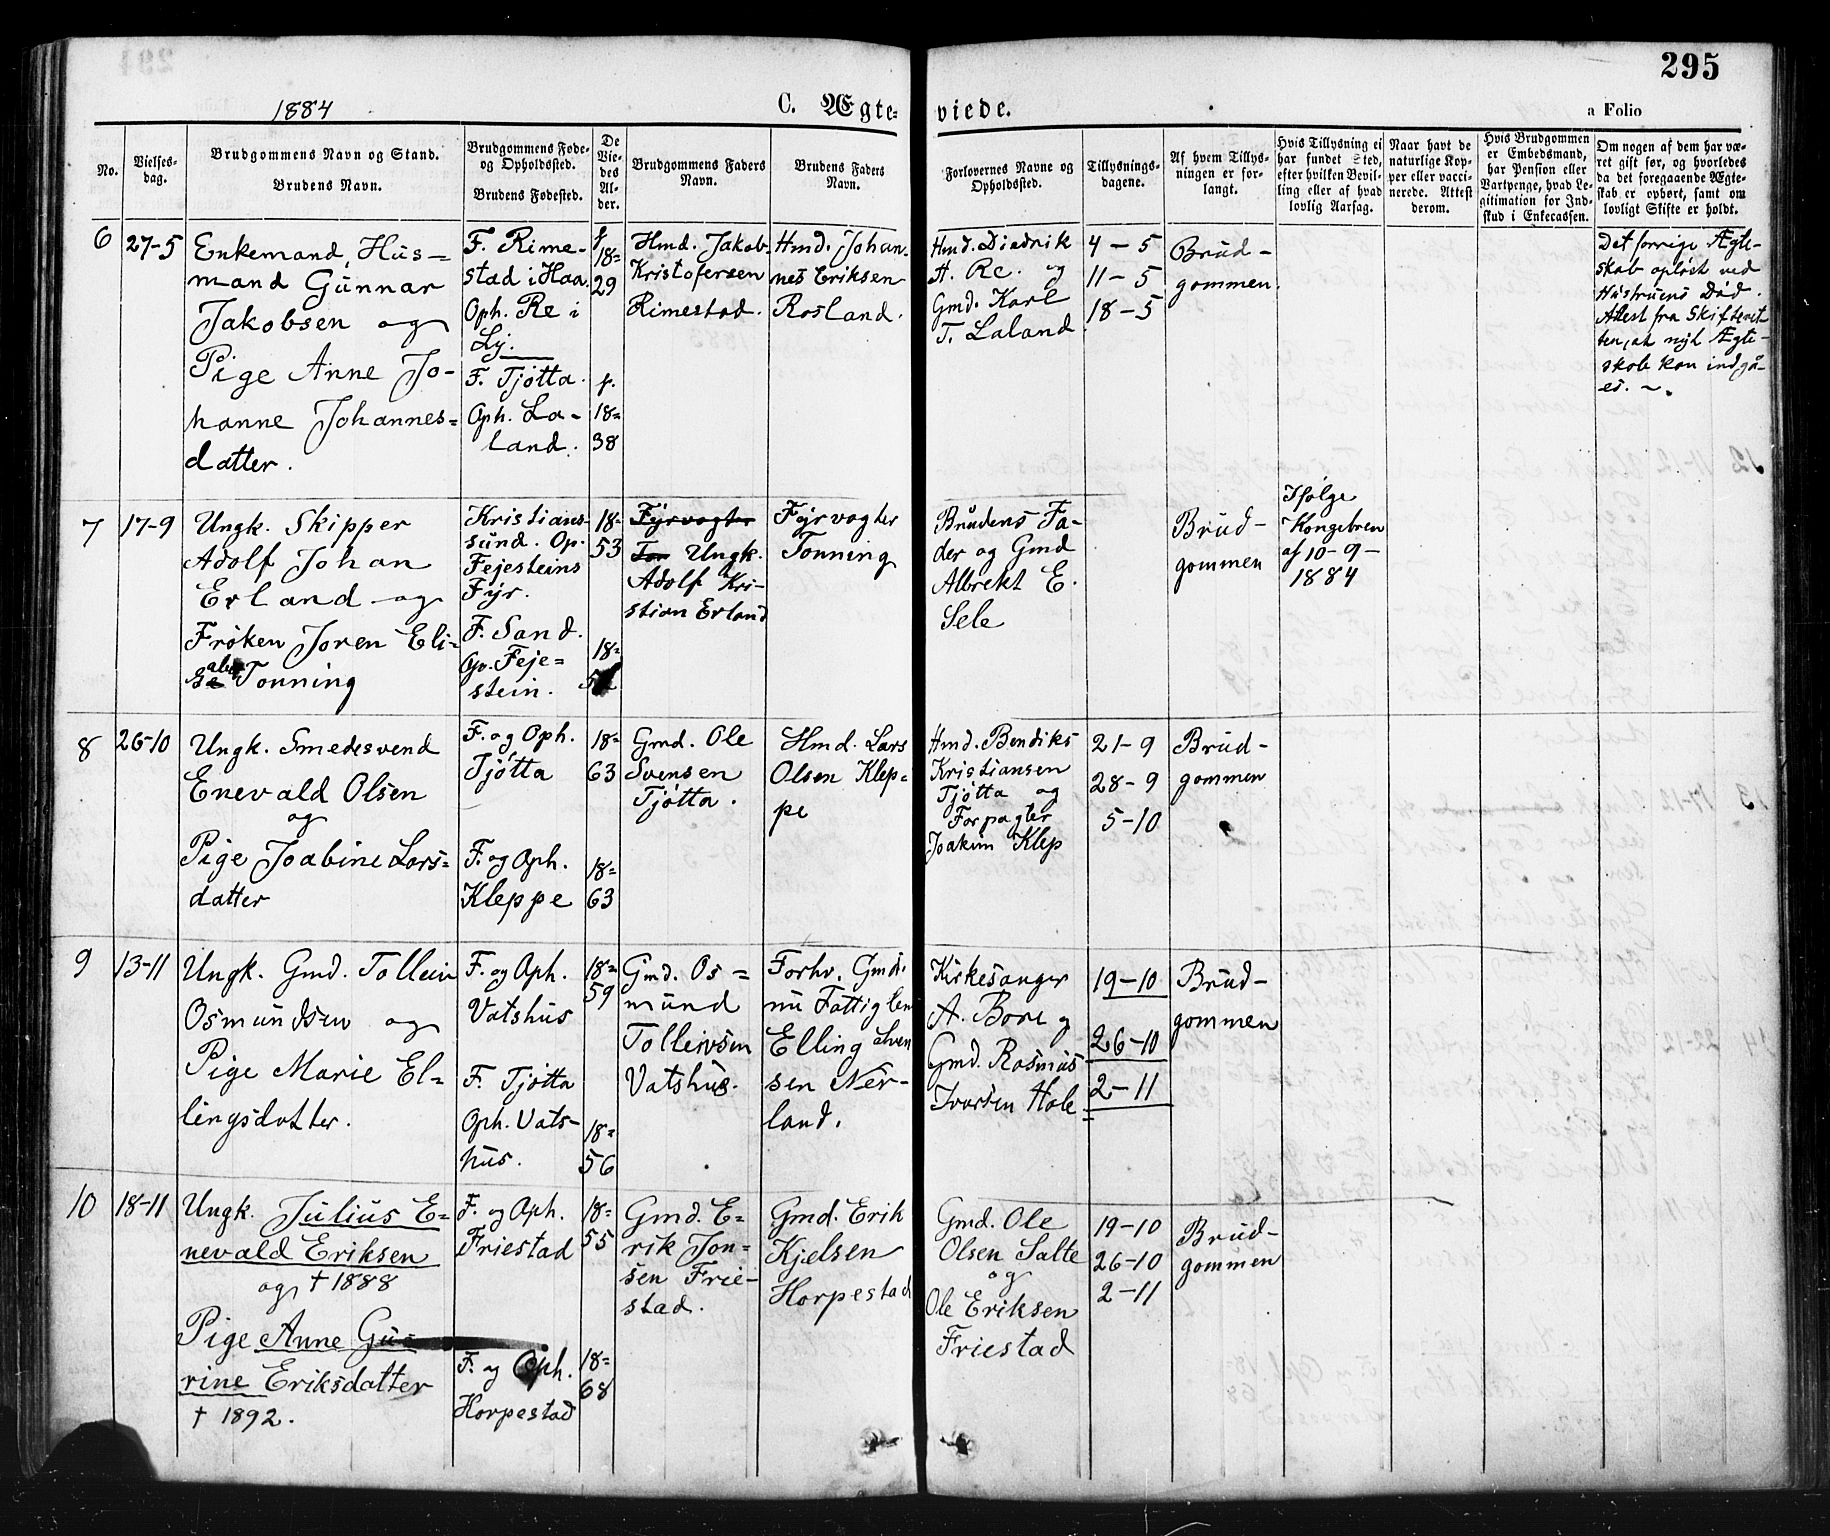 295
1884
C. Ægte-
viede.
a Folio
No.
Vielses-
dag.
Brudgommens Navn og Stand.
Brudens Navn.
Brudgommens Føde-
og Opholdssted.
Brudens Fødested.
De
Vie-
des
Al-
der.
Brudgommens Faders
Navn.
Brudens Faders
Navn.
Forlovernes Navne og
Opholdssted.
Tillysnings-
dagene.
Af hvem Tillys-
ningen er for-
langt.
Hvis Tillysning ei
har fundet Sted,
efter hvilken Bevil-
ling eller af hvad
lovlig Aarsag.
Naar havt de
naturlige Kop-
per eller vacci-
nerede. Attest
derom.
Hvis Brudgommen
er Embedsmand,
har Pension eller
Vartpenge, hvad Le-
gitimation for Ind-
skud i Enkecassen.
Om nogen af dem har væ-
ret gift før, og hvorledes
da det foregaaende Ægte-
skab er ophørt, samt om
lovligt Skifte er holdt.
6
27-5
Enkemand, Hus-
mand Gunnar
Jakobsen og
Pige Anne Jo-
hanne Johannes-
datter.
F. Rime-
stad i Haa.
Oph. Re i
Ly.
F. Tjøtta.
Oph. La-
land.
f.
18=
29
f.
18=
38
Hmd. Jakob
Kristofersen
Rimestad.
Hmd. Johan-
nes Eriksen
Rosland.
Hmd. Diedrik
A. Re. og
Gmd. Karl
T. Laland
4-5
11-5
18-5
Brud-
gommen.
Det forrige Ægte-
skab opløst ved
Hustruens Død.
Attest fra Skifteret-
ten, at nyt Ægte-
skab kan indgå-
es.
7
17-9
Ungk. Skipper
Adolf Johan
Erland og
Frøken Joren Eli-
Tonning
Kristians-
sund. Op.
Fejesteins
Fyr.
F. Sand.
Op. Feje=
stein.
18-
53
18-
Fyrvogter
Ton Ungk.
Adolf Kri-
stian Erland
Fyrvogter
Tonning
Brudens Fa-
der og Gmd
Albrekt E.
Sele
Brud-
gommen
Ifølge
Kongebrev
af 10-9-
1884
8
26-10
Ungk. Smedesvend
Enevald Olsen
og
Pige Joabine Lars-
datter
F. og Oph.
Tjøtta
F. og Oph.
Kleppe
18-
63
18=
63
Gmd. Ole
Svensen
Tjøtta.
Hmd. Lars
Olsen Klep-
pe
Hmd. Bendiks
Kristiansen
Tjøtta og
Forpagter
Joakim Klep
21-9
28-9
5-10
Brud-
gommen
9
13-11
Ungk. Gmd. Tolleiv
Osmundsen og
Pige Marie El-
lingsdatter.
F. og Oph.
Vatshus
F. Tjøtta
Oph. Vats-
hus.
18=
59
18=
56
Gmd. Os=
mund
Tolleivsen
Vatshus.
Forhv. Gmd.
nu Fattiglem
Elling Iven
sen Nær-
land.
Kirkesanger
A. Bore og
Gmd. Rasmus
Ivarsen Hole
19-10
26-10
2-11
Brud-
gommen
10
18-11
Ungk. Julius E-
nevald Eriksen
og † 1888
Pige Anne Gu-
rine Eriksdatter
† 1892.
F. og Oph.
Friestad
F. og Oph.
Horpestad
18=
55
18=
68
Gmd. E-
rik Jon-
sen Frie-
stad.
Gmd. Erik
Kjelsen
Horpestad
Gmd. Ole
Olsen Salte
og
Ole Eriksen
Friestad
19-10
26-10
2-11
Brud-
gommen